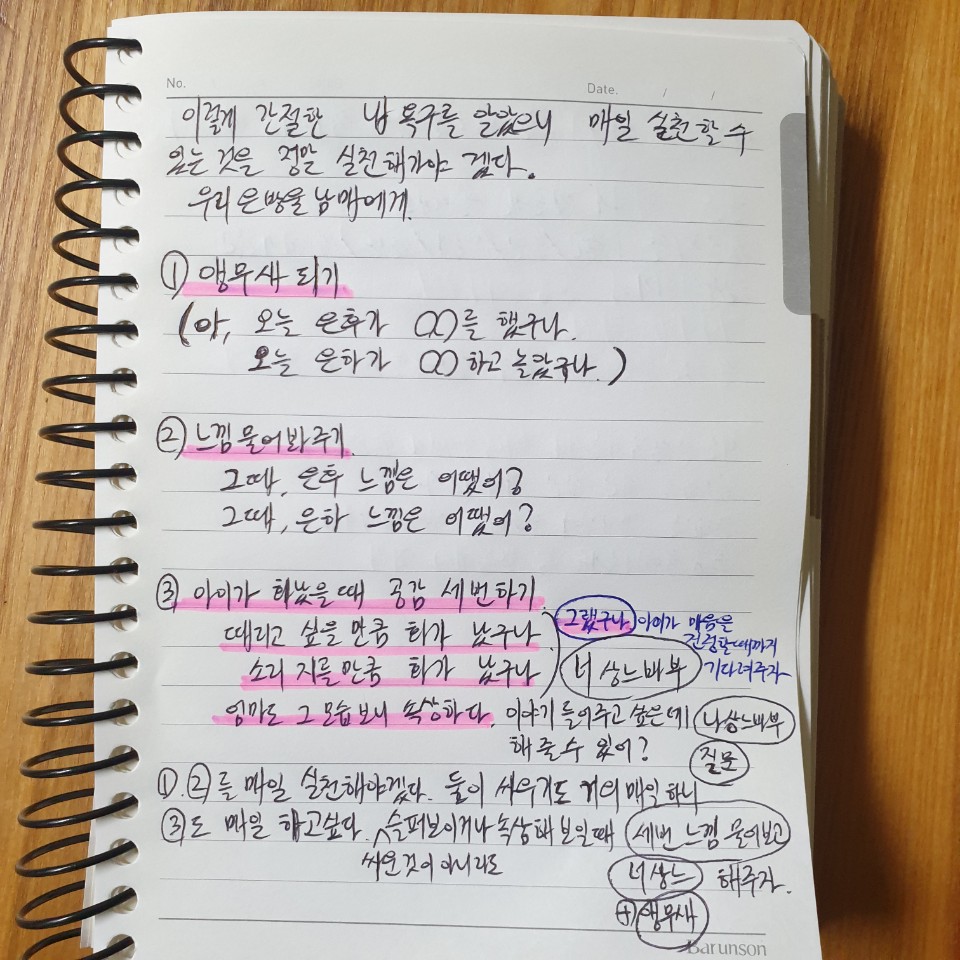 No.
Date. / /
이렇게 간절한 내 욕구를 알았으니 매일 실천할 수
있는 것을 정말 실천해가야 겠다.
우리 은방울 남매에게.
① 앵무새 되기
(아, 오늘 은후가 OO를 했구나.
오늘 은하가 OO 하고 놀았구나.)
② 느낌 물어봐주기
그때, 은후 느낌은 어땠어?
그때, 은하 느낌은 어땠어?
③ 아이가 화났을때 공감 세번하기.
때리고 싶을만큼 화가 났구나
소리 지를만큼 화가 났구나
그랬구나. 아이가 마음을
진정할때까지
기다려주자
너 상느바부
엄마도 그 모습보니 속상하다. 이야기 들어주고 싶은데
해 줄 수 있어?
나상느바부
질문
①.②를 매일 실천해야겠다. 둘이 싸우기도 거의 매일 하니
③도 매일 하고싶다. 슬퍼보이거나 속상해 보일때 세번 느낌 물어보고
싸운것이 아니라도
너상느 해주자.
+ 앵무새
Barunson